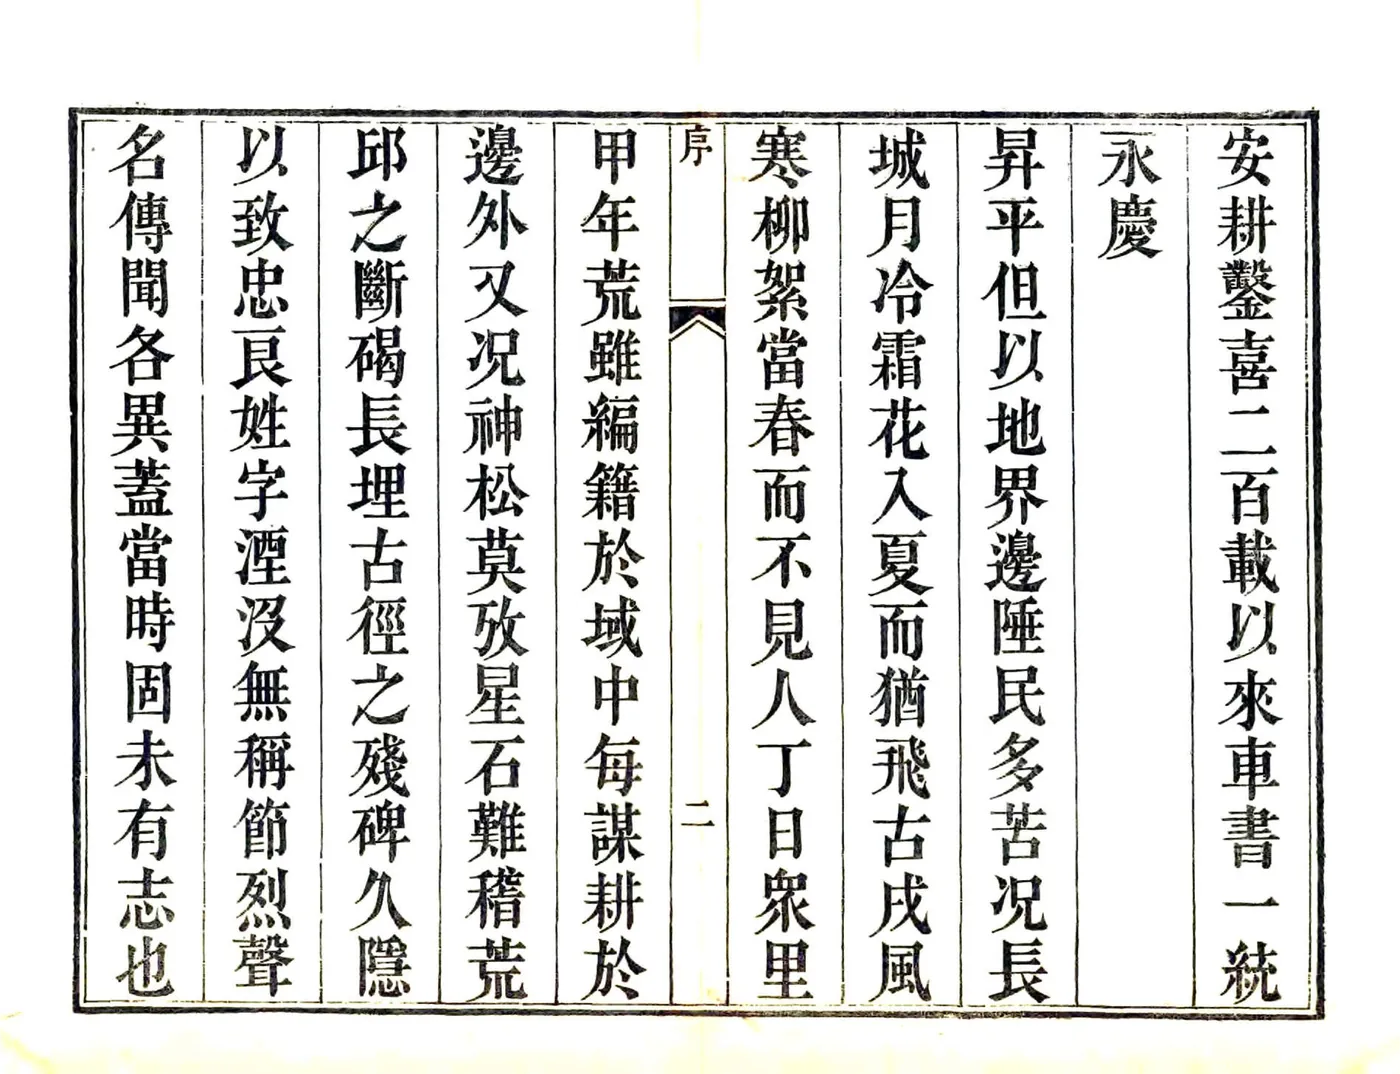 安耕鑿喜二百載以來車書一統
永慶
昇平但以地界邊陲民多苦况長
城月冷霜花入夏而猶飛古戍風
寒柳絮當春而不見人丁日衆里
序
二
甲年荒雖編籍於域中每謀耕於
邊外又况神松莫攷星石難稽荒
邱之斷碣長埋古徑之殘碑久隱
以致忠良姓字湮沒無稱節烈聲
名傳聞各異蓋當時固未有志也